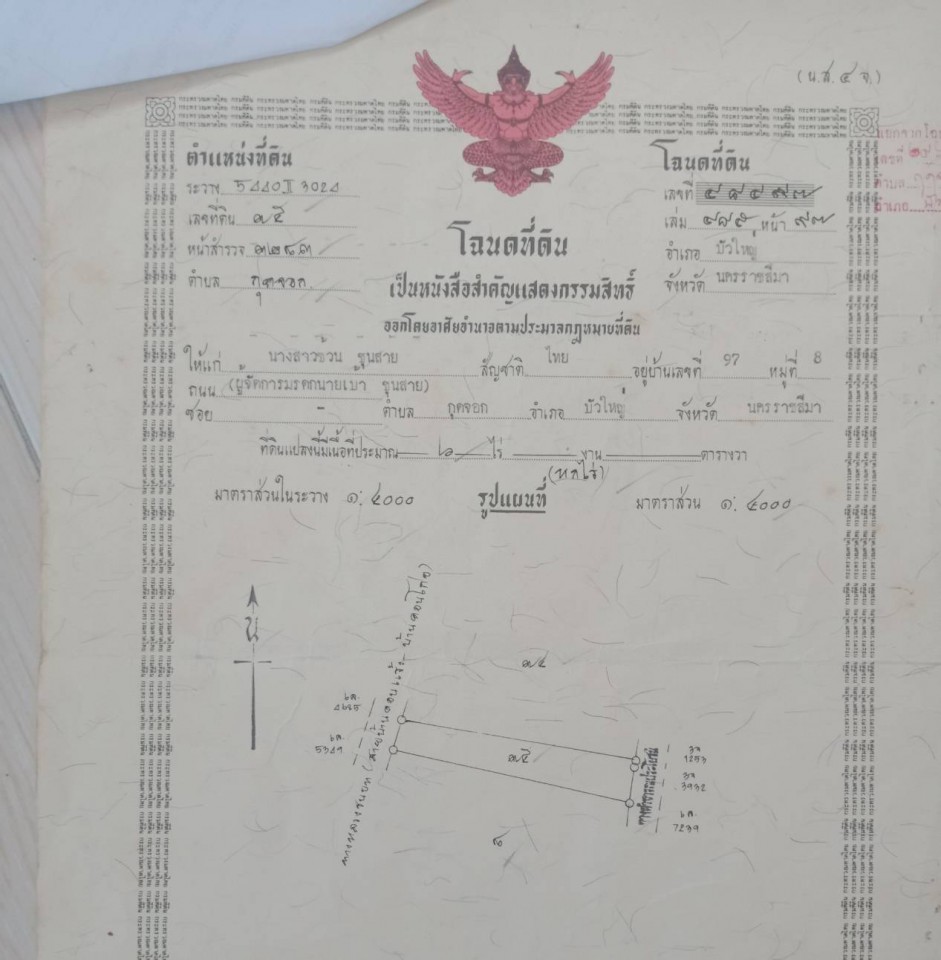 (น.ส.๔ จ.)
ตำแหน่งที่ดิน
ระวาง 5440 II 3024
เลขที่ดิน ๑๕
หน้าสำรวจ
ตำบล กุดจอก
โฉนดที่ดิน
เลขที่ ๔๘๔๙๗
เล่ม ๔๘๕ หน้า ๙๗
อำเภอ บัวใหญ่
จังหวัด นครราชสีมา
โฉนดที่ดิน
เป็นหนังสือสำคัญแสดงกรรมสิทธิ์
ออกโดยอาศัยอำนาจตามประมวลกฎหมายที่ดิน
ให้แก่ นางสาวช้วน ขุนสาย สัญชาติ ไทย อยู่บ้านเลขที่ 97 หมู่ที่ 8
ถนน (ผู้จัดการมรดกนายเบ้า ขุนสาย)
ซอย - ตำบล กุดจอก อำเภอ บัวใหญ่ จังหวัด นครราชสีมา
ที่ดินแปลงนี้มีเนื้อที่ประมาณ ๖ ไร่ - งาน ตารางวา
(หกไร่)
มาตราส่วนในระวาง ๑:๔๐๐๐ รูปแผนที่ มาตราส่วน ๑:๔๐๐๐
น
ทางหลวงชนบท (สายบ้านดอนแจ้ง - บ้านดอนไก่อ)
๑๔
๑๕
๘
5341
ทางลำรางสาธารณประโยชน์
1253
3932
7239